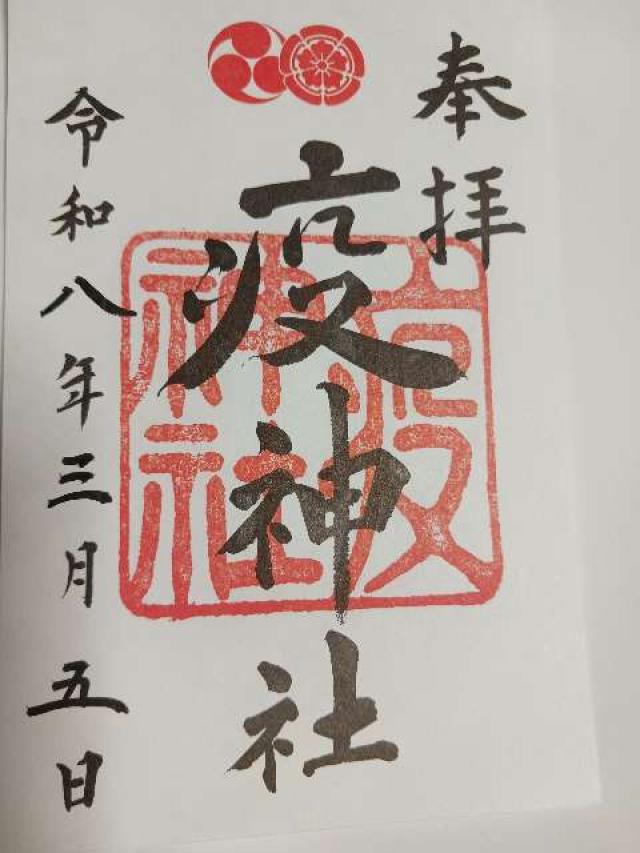 奉拝
疫神社
疫神社
令和八年三月五日